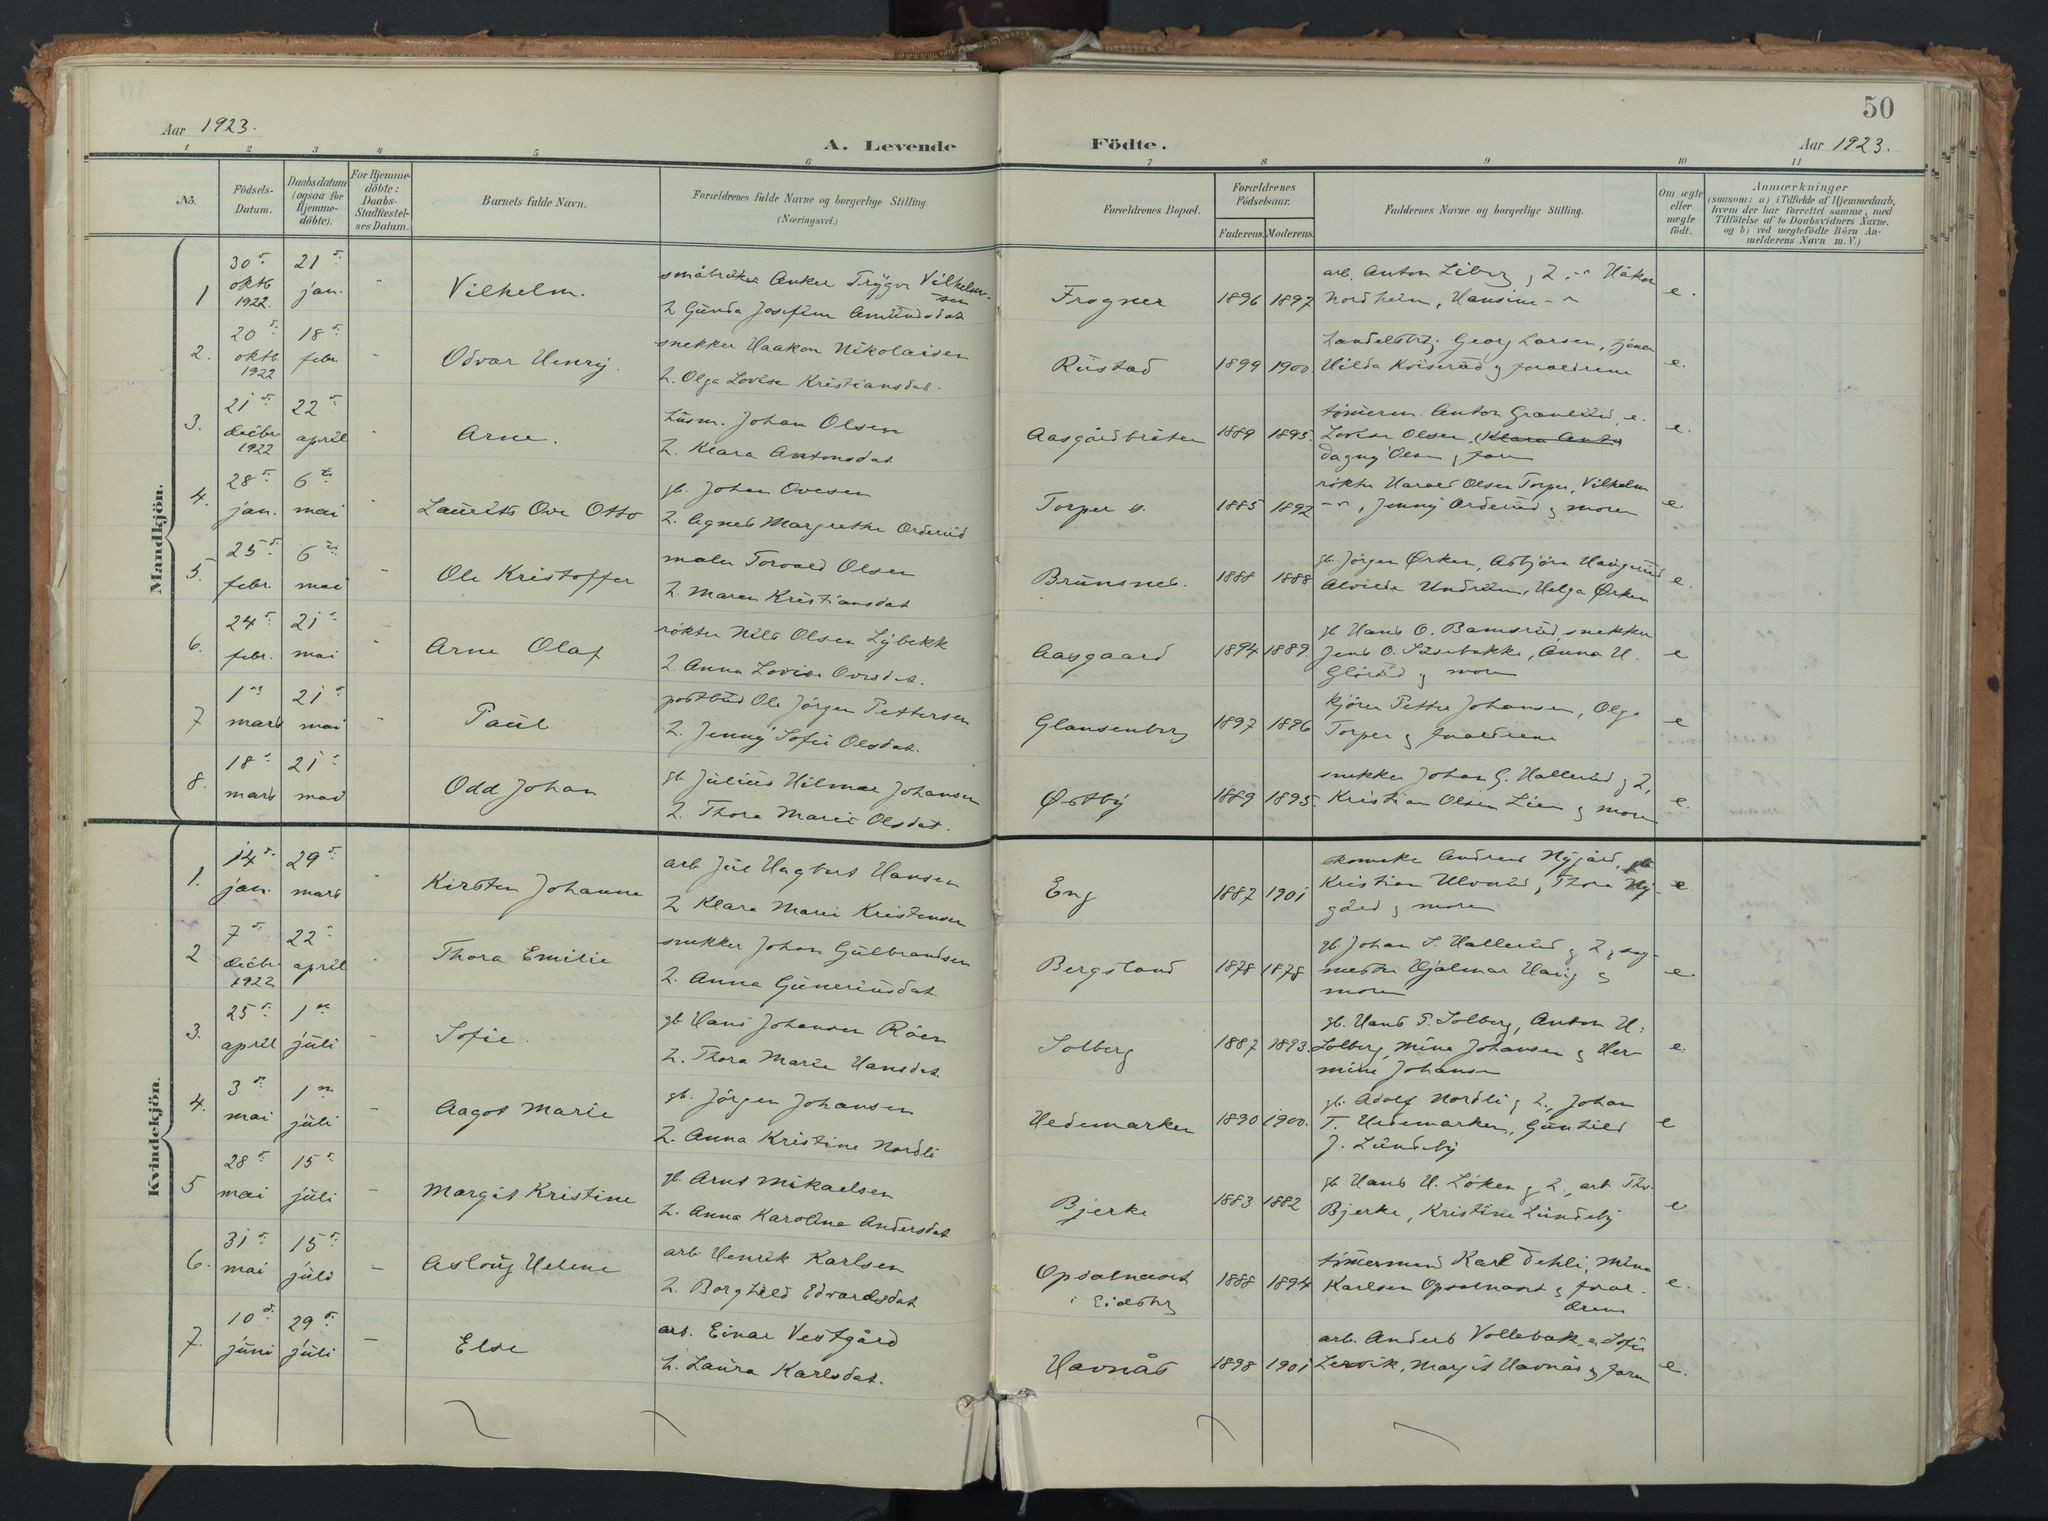 50
Aar 1923.
A. Levende Födte.
Aar 1923.
1 2 3 4 5 6 7 8 9 10 11
No. Födsels-Datum. Daabsdatum (ogsaa for Hjemmedöbte). For Hjemmedöbte: Daabs-Stadfæstelses Datum. Barnets fulde Navn. Forældrenes fulde Navne og borgerlige Stilling. (Næringsvei.) Forældrenes Bopæl. Forældrenes Födselsaar. Faderens. Moderens. Faddernes Navne og borgerlige Stilling. Om ægte eller uægte födt. Anmærkninger (saasom: a) i Tilfælde af Hjemmedaab, hvem der har forrettet samme, med Tilföielse af to Daabsvidners Navne, og b) ved uægtefödte Börn Anmelderens Navn m. V.)
Mandkjön.
1 30 oktb 1922 21 jan. Vilhelm. småbruker Anker Trygve Vilhelmsen
Gunda Josefine Amundsdat Frogner 1896 1897 arb. Anton Liberg Håkon Nordheim, Hansine e.
2. 20 oktb 1922 18 febr Odvar Henry. snekker Haakon Nikolaisen
Olga Lovise Kristiansdat. Rustad 1899 1900. Georg Larsen, Hilda og forældrene e.
3. 21 decbr 1922 22 april Arne. husm. Johan Olsen
Klara Antonsdat. Aasgårdbråten 1889 1895. tömerm. Anton Granlund, Lovise Olsen, Dagny Olsen og faren e.
4. 28 jan. 6 mai Laurits Ove Otto gb. Johan Ovesen
Agnes Margrethe Orderud Torper 1885 1892 røkter Harald Olsen Torper, Vilhelm, Jenny Orderud og moren e
5. 25 febr. 6 mai Ole Kristoffer maler Torvald Olsen
Maren Kristiansdat Brunsnes. 1888 1888 gb. Jörgen Ørken, Asbjörn Haugerud Alvilde Undrum, Helga Ørken e.
6. 24 febr. 21 mai Arne Olaf røkter Nils Olsen Lybekk
Anna Lovise Ovesdat. Aasgaard 1894 1889. gb Hans O. Bamsrud, snekker Jens O. Anna H. og moren e
7 1 mars 21 mai Paul postbud Ole Jörgen Pettersen
Jenny Sofie Olsdat. Glansenberg 1897 1896 kjörer Petter Johansen, Olga Torper og forældrene e
8. 18 mars 21 mai Odd Johan gb. Julius Hilmar Johansen
Thora Marie Olsdat. Østby 1889 1895. snekker Johan G. Hallerud og Kristian Olsen Lien og moren e.
Kvindekjön.
1. 14 jan. 29 mars Kirsten Johanne arb Jul Hagbart Hansen
Klara Marie Kristensen Eng 1887 1901 skomaker Andreas Nygård, Kristian Ulverud, Thora Nygård og moren e
2 7 decbr 1922 22 april Thora Emilie snekker Johan Gulbrandsen
Anna Guneriusdat. Bergsland 1878 1878 gb. Johan S. Hallerud og sagmester Hjalmar Haug og moren e
3. 25 april 1 juli Sofie. gb. Hans Johansen Röen
Thora Marie Hansdat. Solberg 1887 1893. gb. Hans P. Solberg, Anton H. Solberg, Mina Johansen og Hermine Johansen e
4. 3 mai 1 juli Aagot Marie gb. Jörgen Johansen
Anna Kristine Nordli Hedemarken 1890 1900. gb. Adolf Nordli Johan T. Hedemarken, Gunhild J. Lundeby e
5 28 mai 15 juli Margit Kristine gb. Arns Mikaelsen
Anna Karoline Andersdat Bjerke 1883 1882 gb Hans H. Löken arb. Bjerke, Kristine Lundeby e
6. 31 mai 15 juli Aslaug Helene arb. Henrik Karlsen
Borghild Edvardsdat Opsalnæset i Eidsberg 1888 1894 tömermand Karl Dehli, Mina Karlsen Opsalnæset og forældrene e.
7. 10 juni 29 juli Else arb. Einar Vestgård
Laura Karlsdat. Havnås 1898 1901 arb. Anders Vollebæk Sofie Lervik, Margit Havnås og faren e.